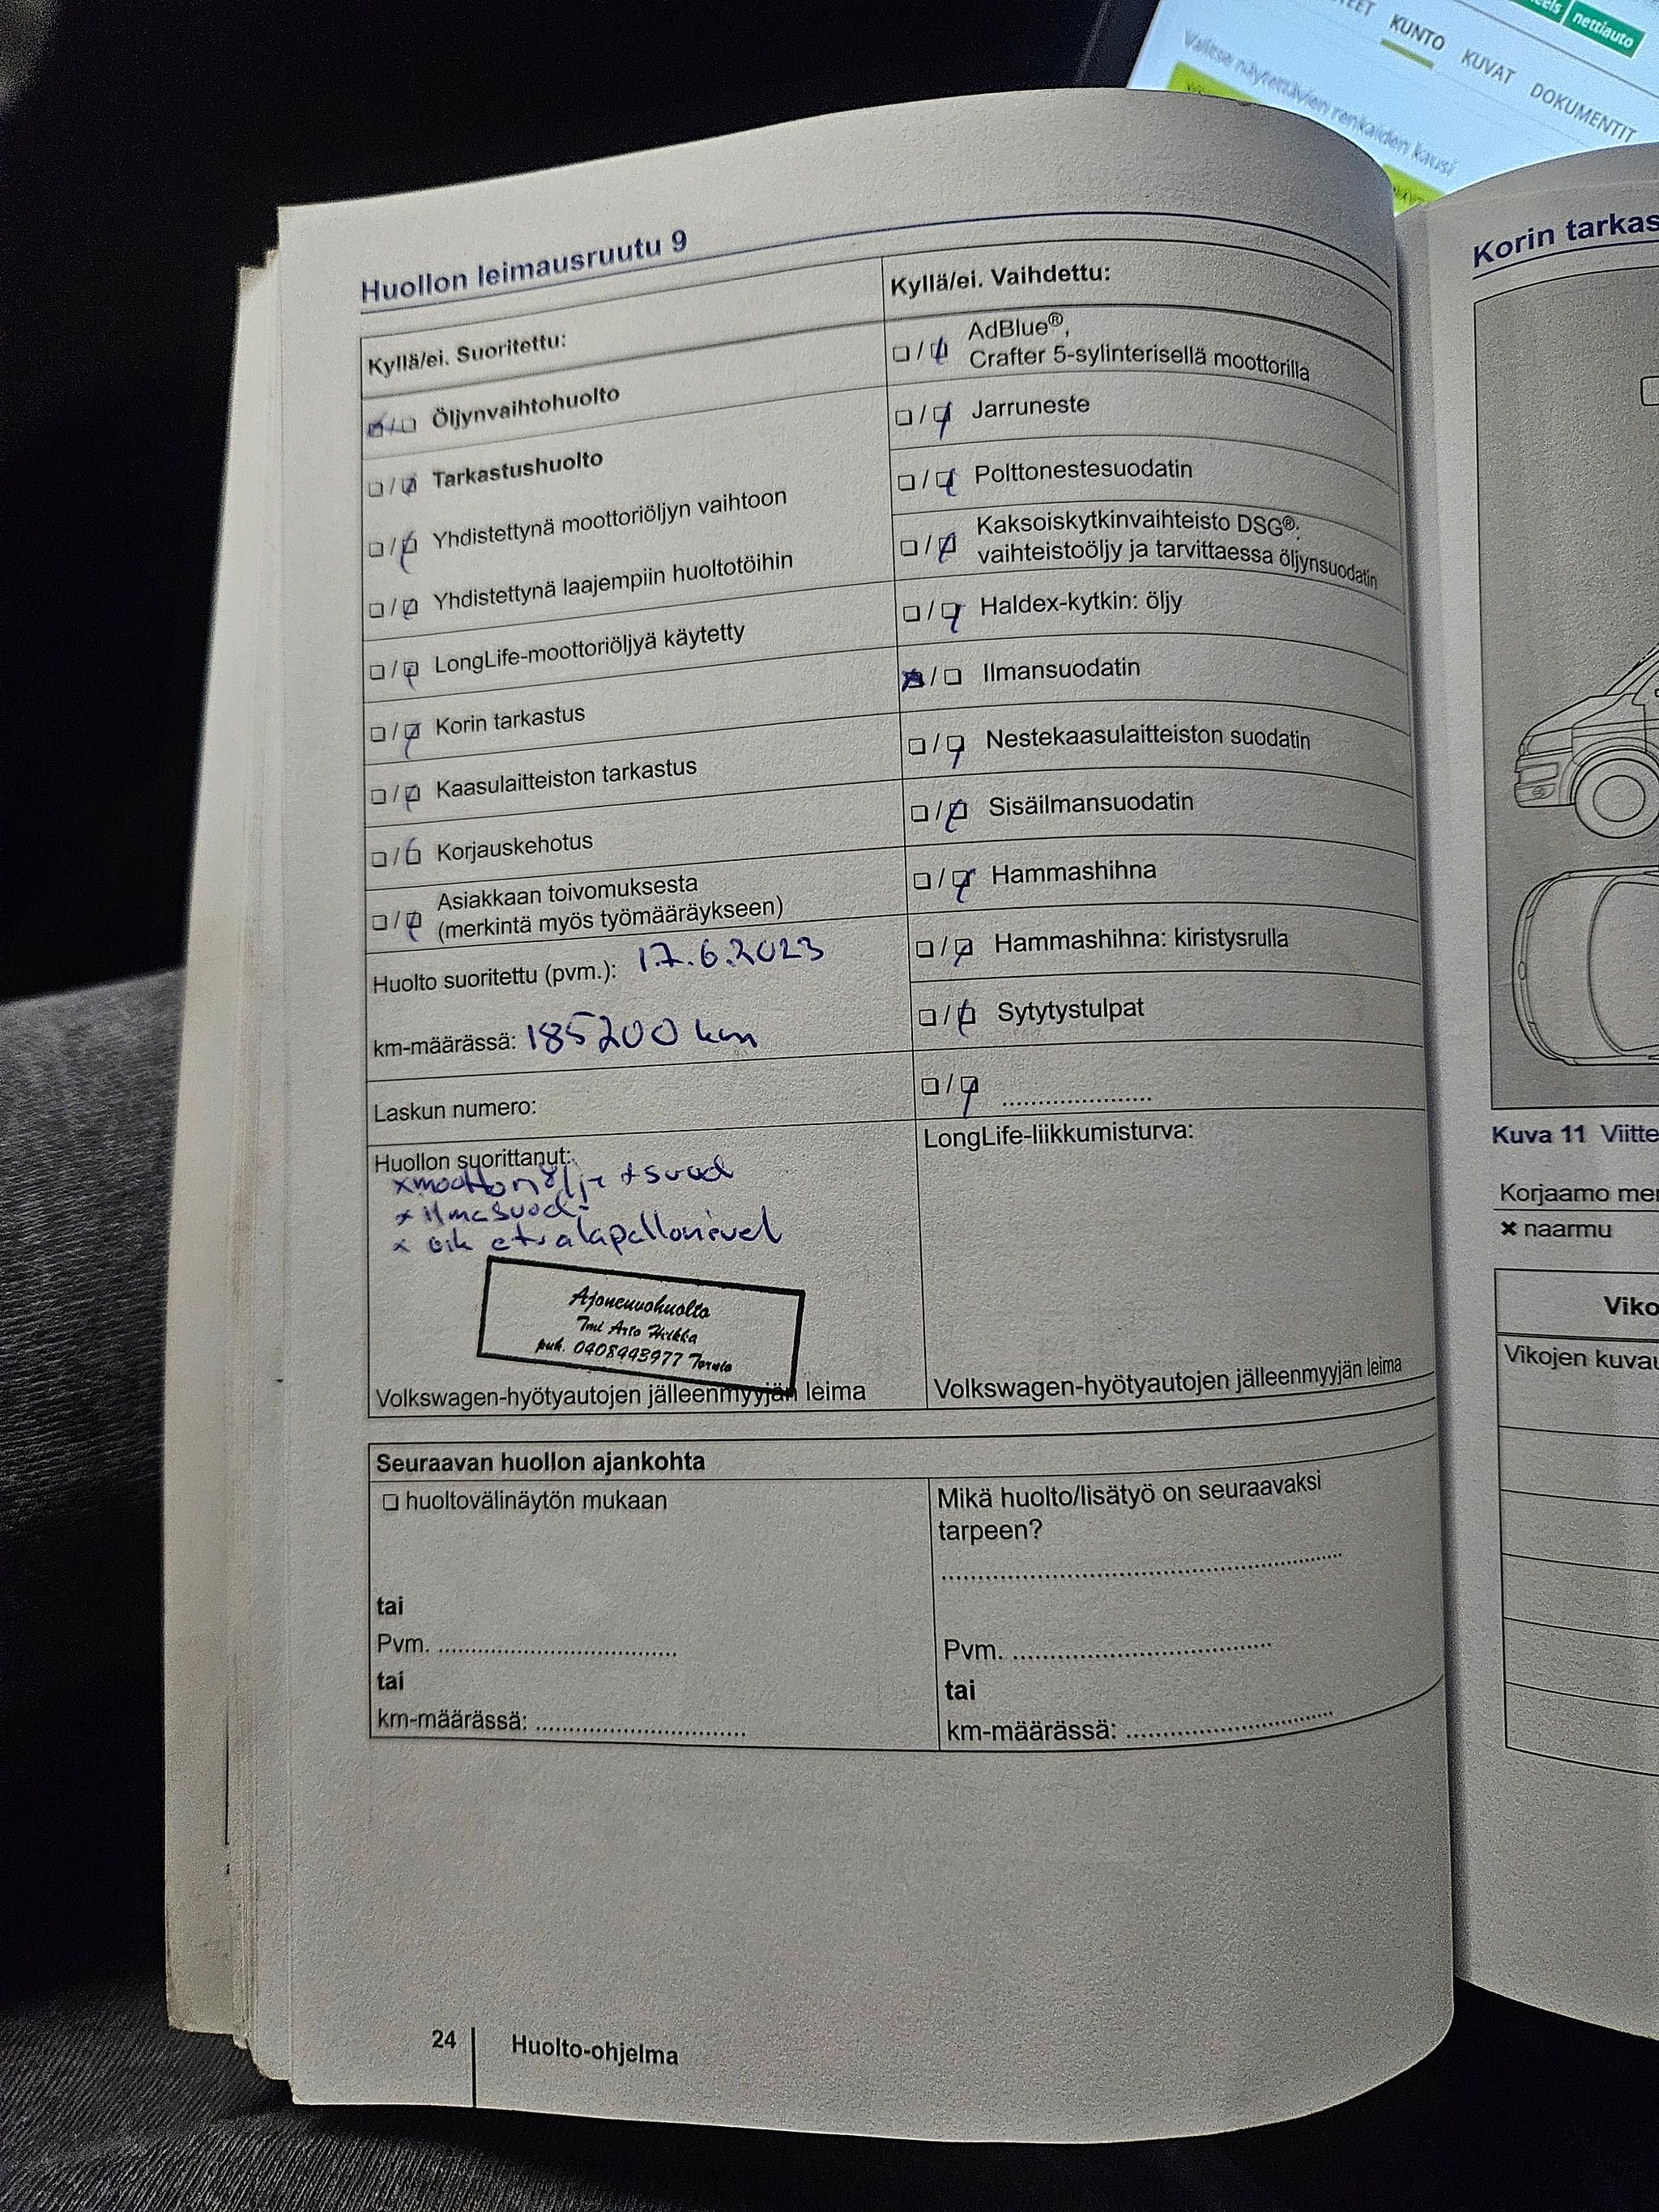 nettiauto
KUNTO
KUVAT
DOKUMENTIT
Valitse näytettävien renkaiden kausi
Huollon leimausruutu 9
Kyllä/ei. Suoritettu:
Öljynvaihtohuolto
Tarkastushuolto
Yhdistettynä moottoriöljyn vaihtoon
Yhdistettynä laajempiin huoltotöihin
LongLife-moottoriöljyä käytetty
Korin tarkastus
Kaasulaitteiston tarkastus
Korjauskehotus
Asiakkaan toivomuksesta
(merkintä myös työmääräykseen)
Huolto suoritettu (pvm.): 17.6.2023
km-määrässä: 185200 km
Laskun numero:
Huollon suorittanut:
x moottoriöljy + suod
x ilmasuod.
x oik etu alapallonivel
Ajoneuvohuolto
Tmi Arto Hilkka
puh. 0408443977 Tornio
Volkswagen-hyötyautojen jälleenmyyjän leima
Kyllä/ei. Vaihdettu:
AdBlue®,
Crafter 5-sylinterisellä moottorilla
Jarruneste
Polttonestesuodatin
Kaksoiskytkinvaihteisto DSG®:
vaihteistoöljy ja tarvittaessa öljynsuodatin
Haldex-kytkin: öljy
Ilmansuodatin
Nestekaasulaitteiston suodatin
Sisäilmansuodatin
Hammashihna
Hammashihna: kiristysrulla
Sytytystulpat
....................
LongLife-liikkumisturva:
Volkswagen-hyötyautojen jälleenmyyjän leima
Seuraavan huollon ajankohta
huoltovälinäytön mukaan
tai
Pvm. ................................
tai
km-määrässä: ............................
Mikä huolto/lisätyö on seuraavaksi
tarpeen?
......................................................
Pvm. ...................................
tai
km-määrässä: ............................
24 Huolto-ohjelma
Korin tarkas
Kuva 11 Viitte
Korjaamo mer
✖ naarmu
Viko
Vikojen kuvau